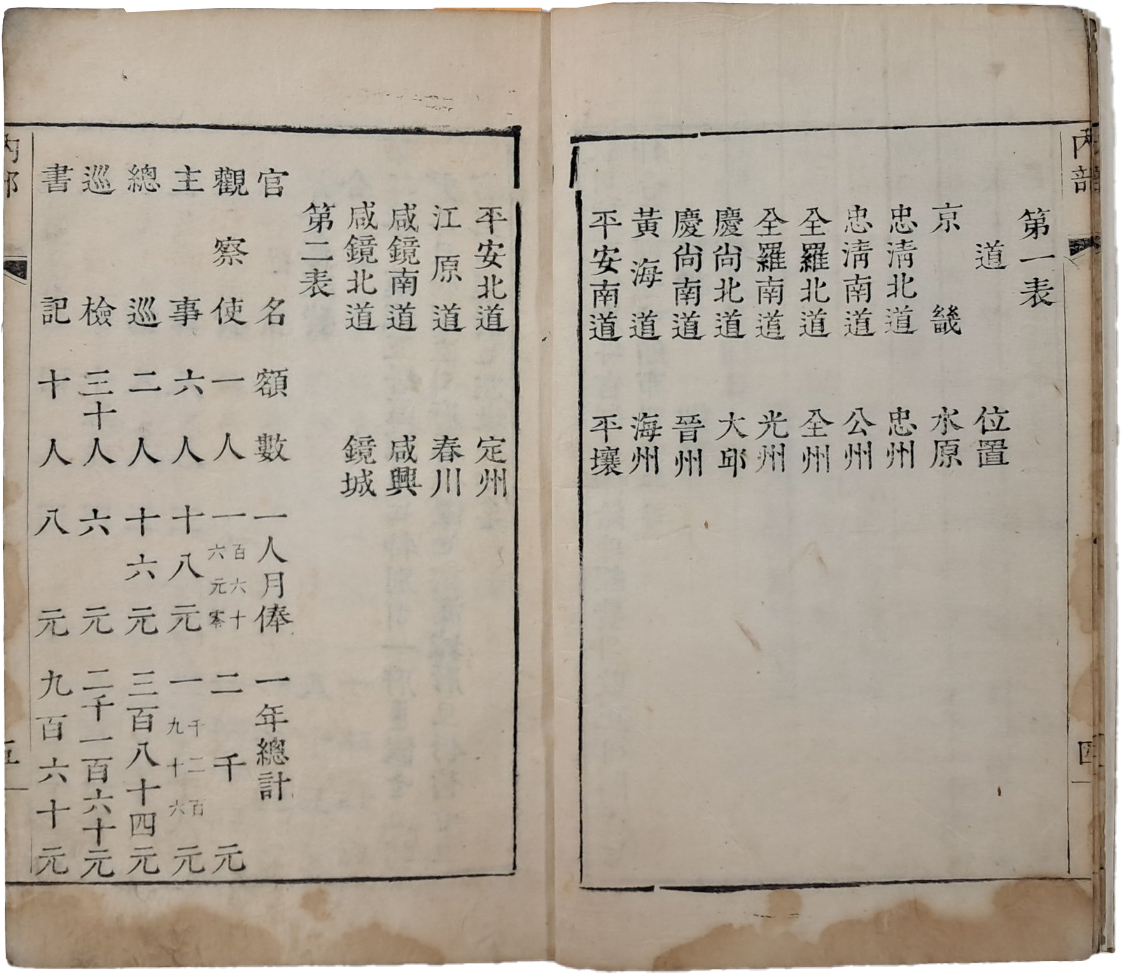 內部 四
第一表
道 位置
京畿 水原
忠淸北道 忠州
忠淸南道 公州
全羅北道 全州
全羅南道 光州
慶尙北道 大邱
慶尙南道 晉州
黃海道 海州
平安南道 平壤
平安北道 定州
江原道 春川
咸鏡南道 咸興
咸鏡北道 鏡城
第二表
官名 額數 一人月俸 一年總計
觀察使 一人 一百六十六元零 二千元
主事 六人 十八元 一千二百九十六元
總巡 二人 十六元 三百八十四元
巡檢 三十人 六元 二千一百六十元
書記 十人 八元 九百六十元
內部 五